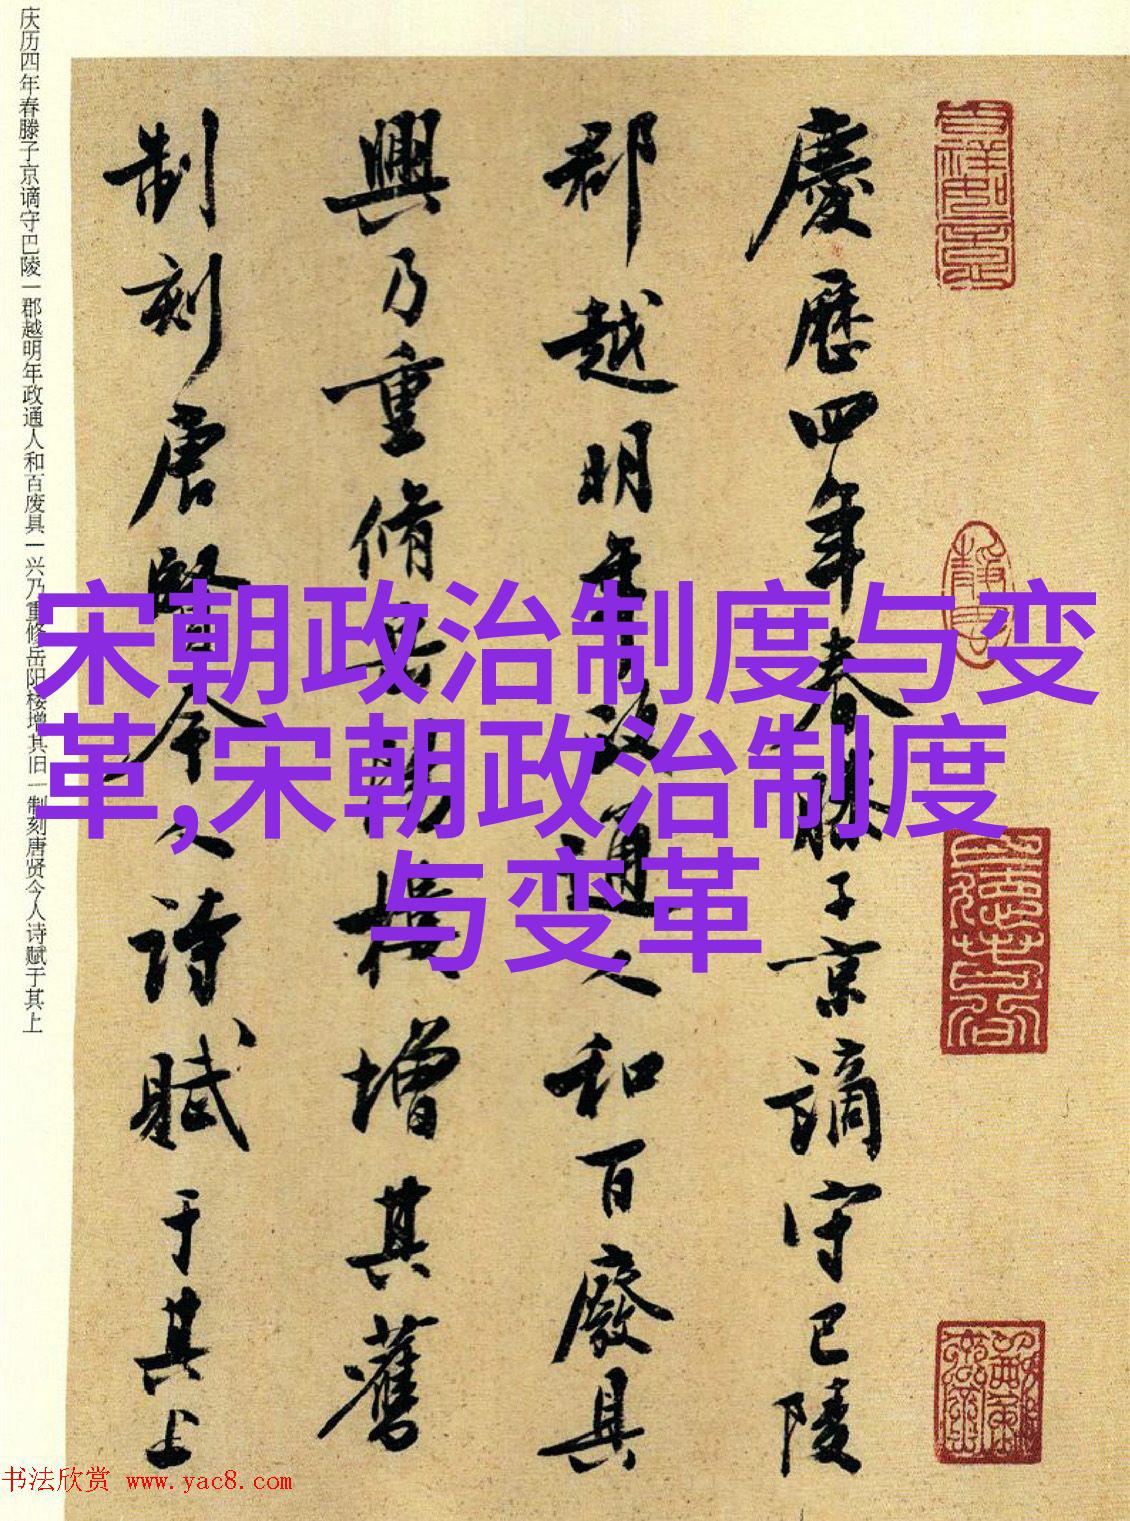 慶歷四年春滕子京謫守巴陵
郡越明年政通人和百廢具
興乃重脩岳陽樓增其舊
制刻唐賢今人詩賦于其上
庆历四年春滕子京谪守巴陵一郡越明年政通人和百废具一兴乃重修岳阳楼增其旧一制刻唐贤今人诗赋于其上
宋朝政治制度与变
革,宋朝政治制度
与变革
书法欣赏 www.yac8.com